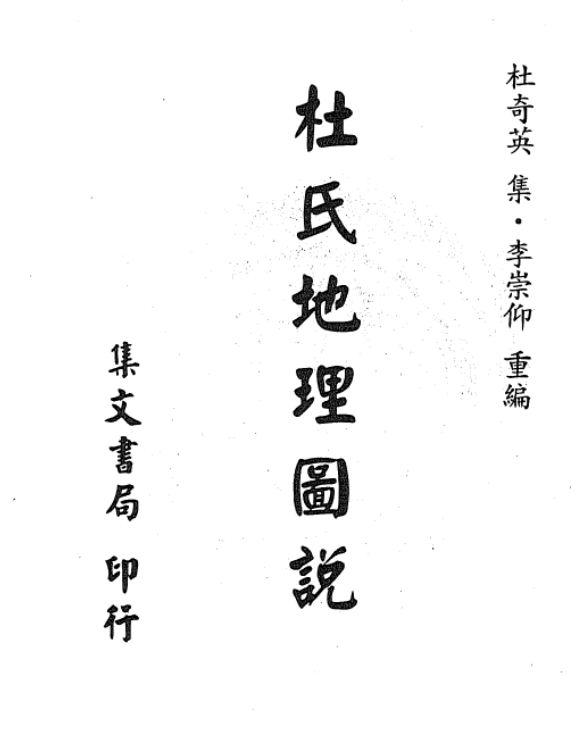 杜奇英 集・李崇仰 重編
杜氏地理圖説
集文書局 印行